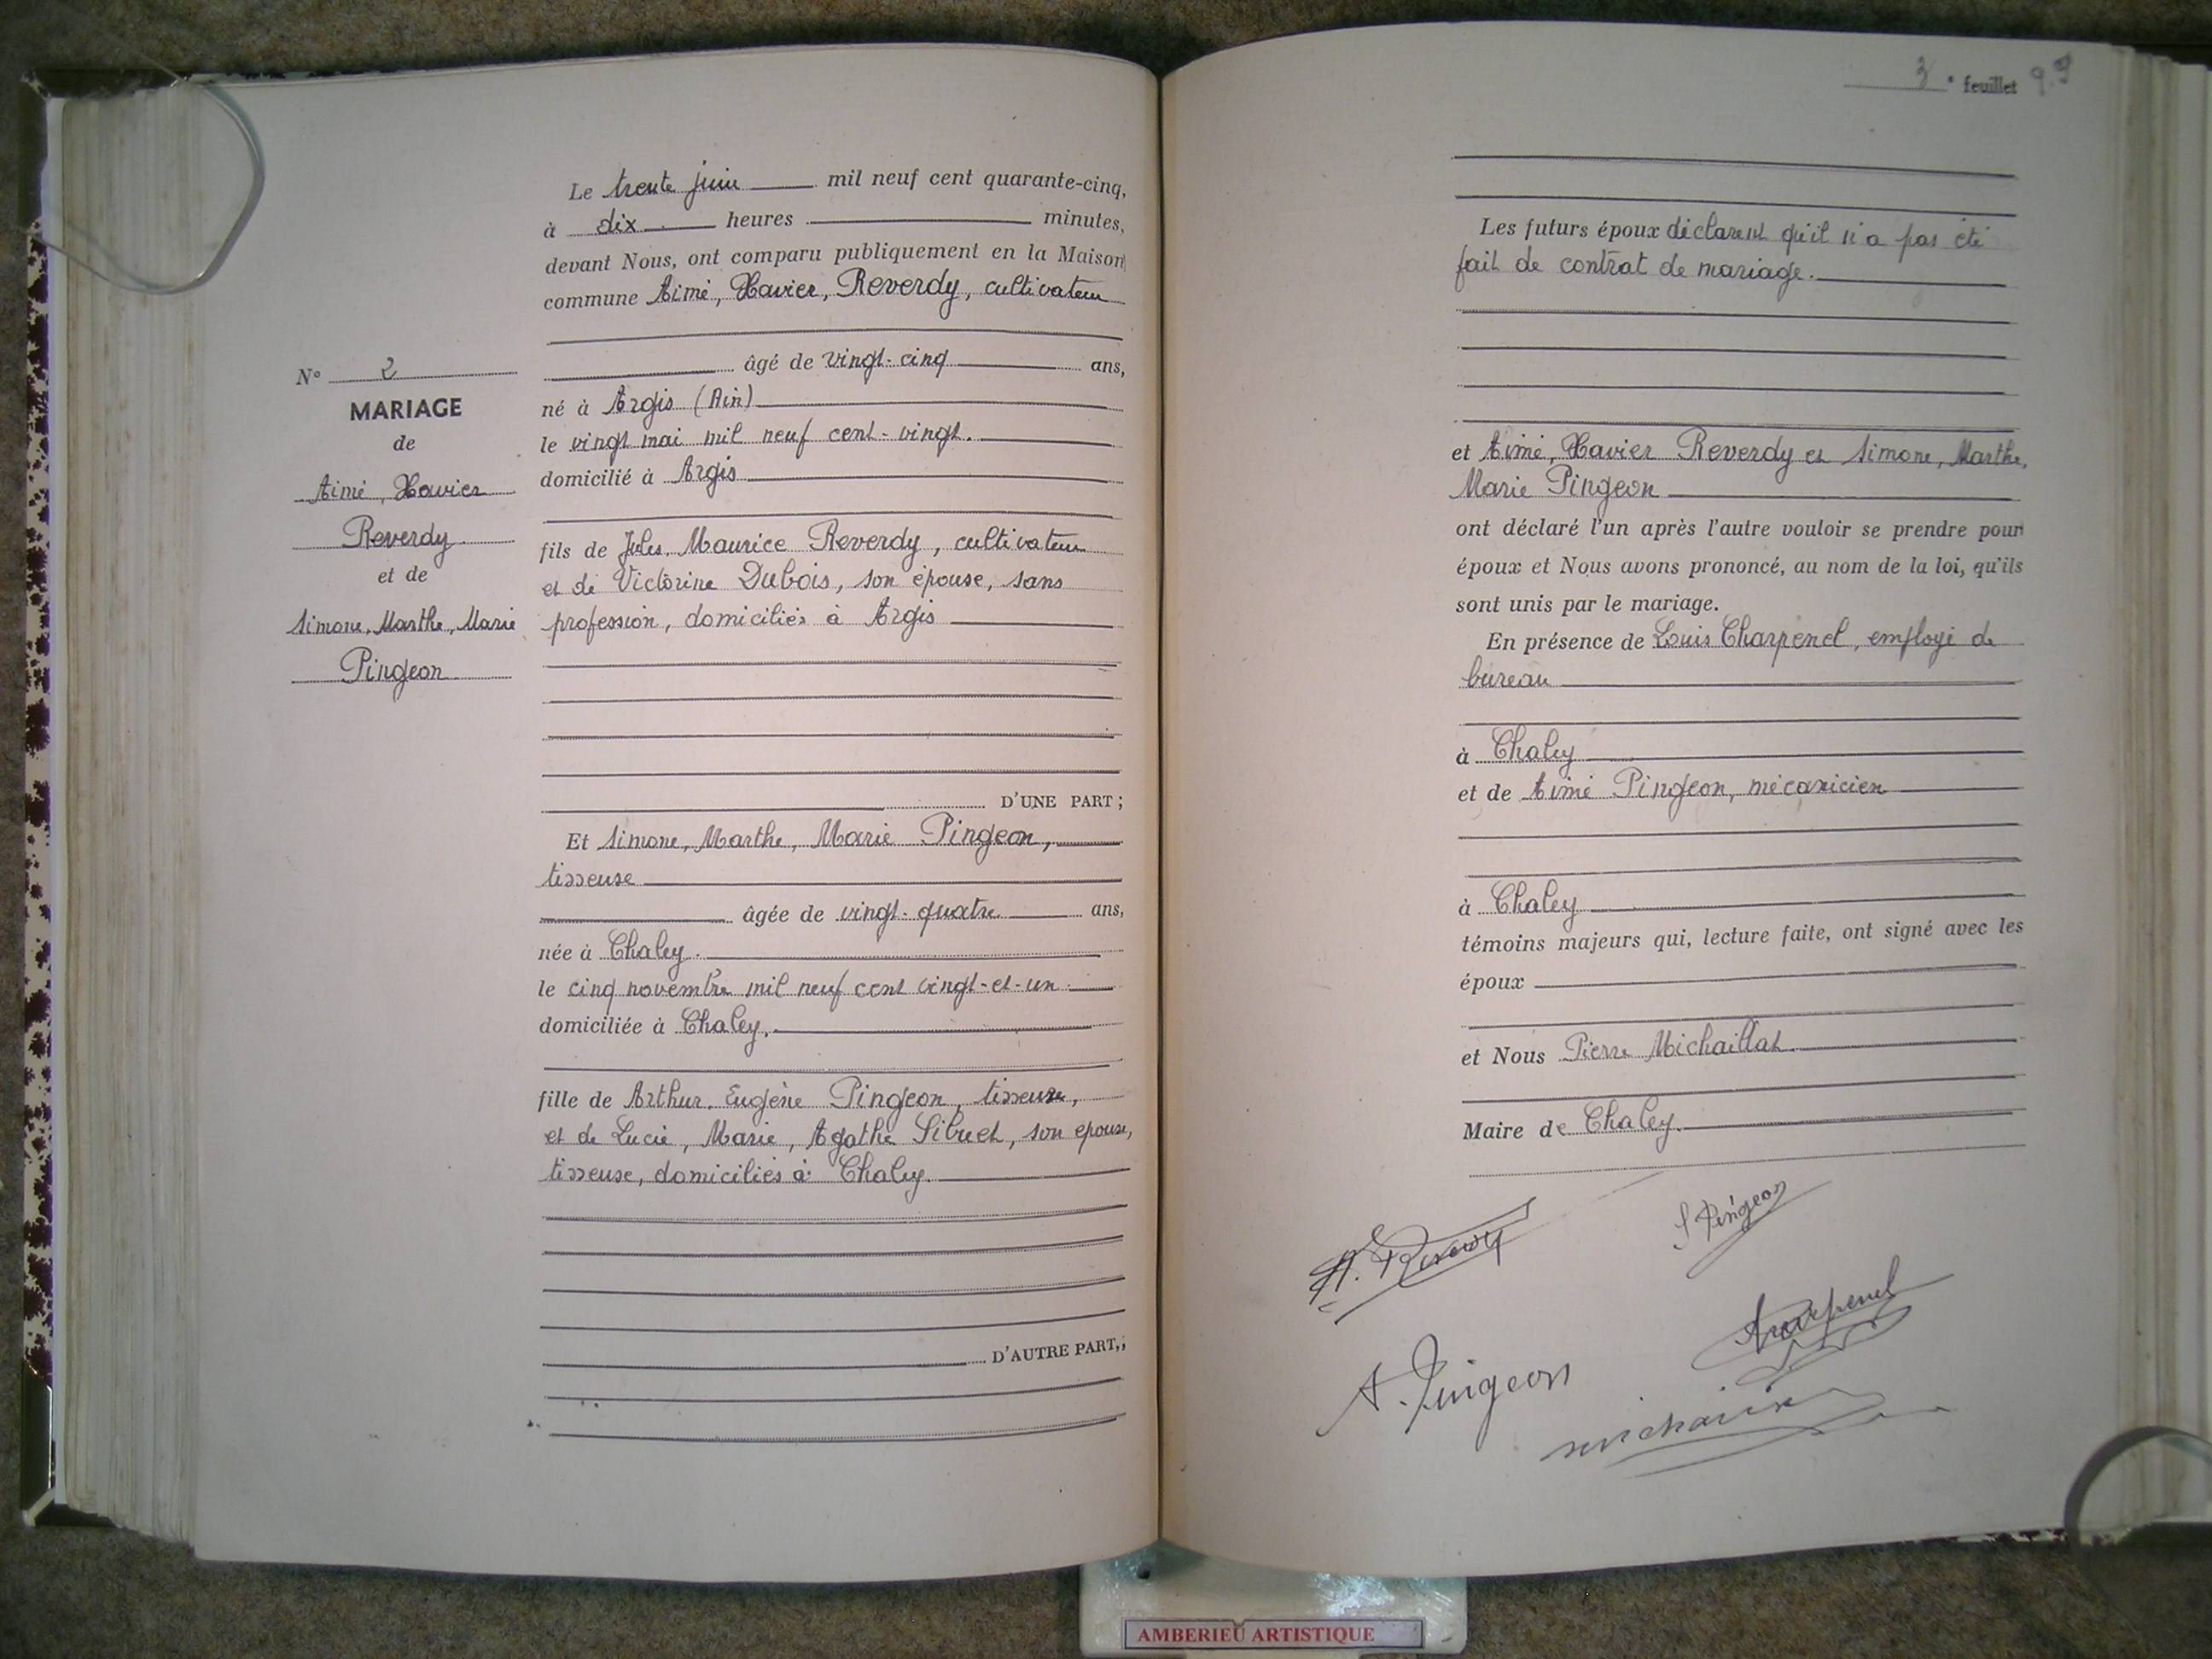 N° 2
MARIAGE
de
Aimé, Xavier
Reverdy
et de
Simone, Marthe, Marie
Pingeon
Le trente juin mil neuf cent quarante-cinq,
à dix heures minutes,
devant Nous, ont comparu publiquement en la Maison
commune Aimé, Xavier, Reverdy, cultivateur
âgé de vingt-cinq ans,
né à Argis (Ain)
le vingt mai mil neuf cent-vingt.
domicilié à Argis
fils de Jules, Maurice Reverdy, cultivateur
et de Victorine Dubois, son épouse, sans
profession, domiciliés à Argis
D'UNE PART ;
Et Simone, Marthe, Marie Pingeon,
tisseuse
âgée de vingt-quatre ans,
née à Chaley.
le cinq novembre mil neuf cent vingt-et-un
domiciliée à Chaley.
fille de Arthur, Eugène Pingeon,
et de Lucie, Marie, Agathe Sibuet, son épouse,
tisseuse, domiciliés à Chaley.
D'AUTRE PART,;
3 e feuillet
Les futurs époux déclarent qu'il n'a pas été
fait de contrat de mariage.
et Aimé, Xavier Reverdy et Simone, Marthe,
Marie Pingeon
ont déclaré l'un après l'autre vouloir se prendre pour
époux et Nous avons prononcé, au nom de la loi, qu'ils
sont unis par le mariage.
En présence de Louis Charpenel, employé de
bureau
à Chaley
et de Aimé Pingeon, mécanicien
à Chaley
témoins majeurs qui, lecture faite, ont signé avec les
époux
et Nous Pierre Michaillat
Maire de Chaley.
S Pingeon
Charpenel
A. Pingeon
AMBERIEU ARTISTIQUE